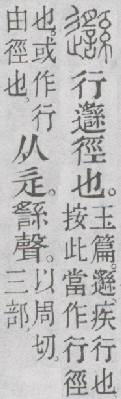 邎 行邎徑也。玉篇。邎、疾行也按此當作行徑
也。或作行由徑也。从辵。䌛聲。以周切。三部